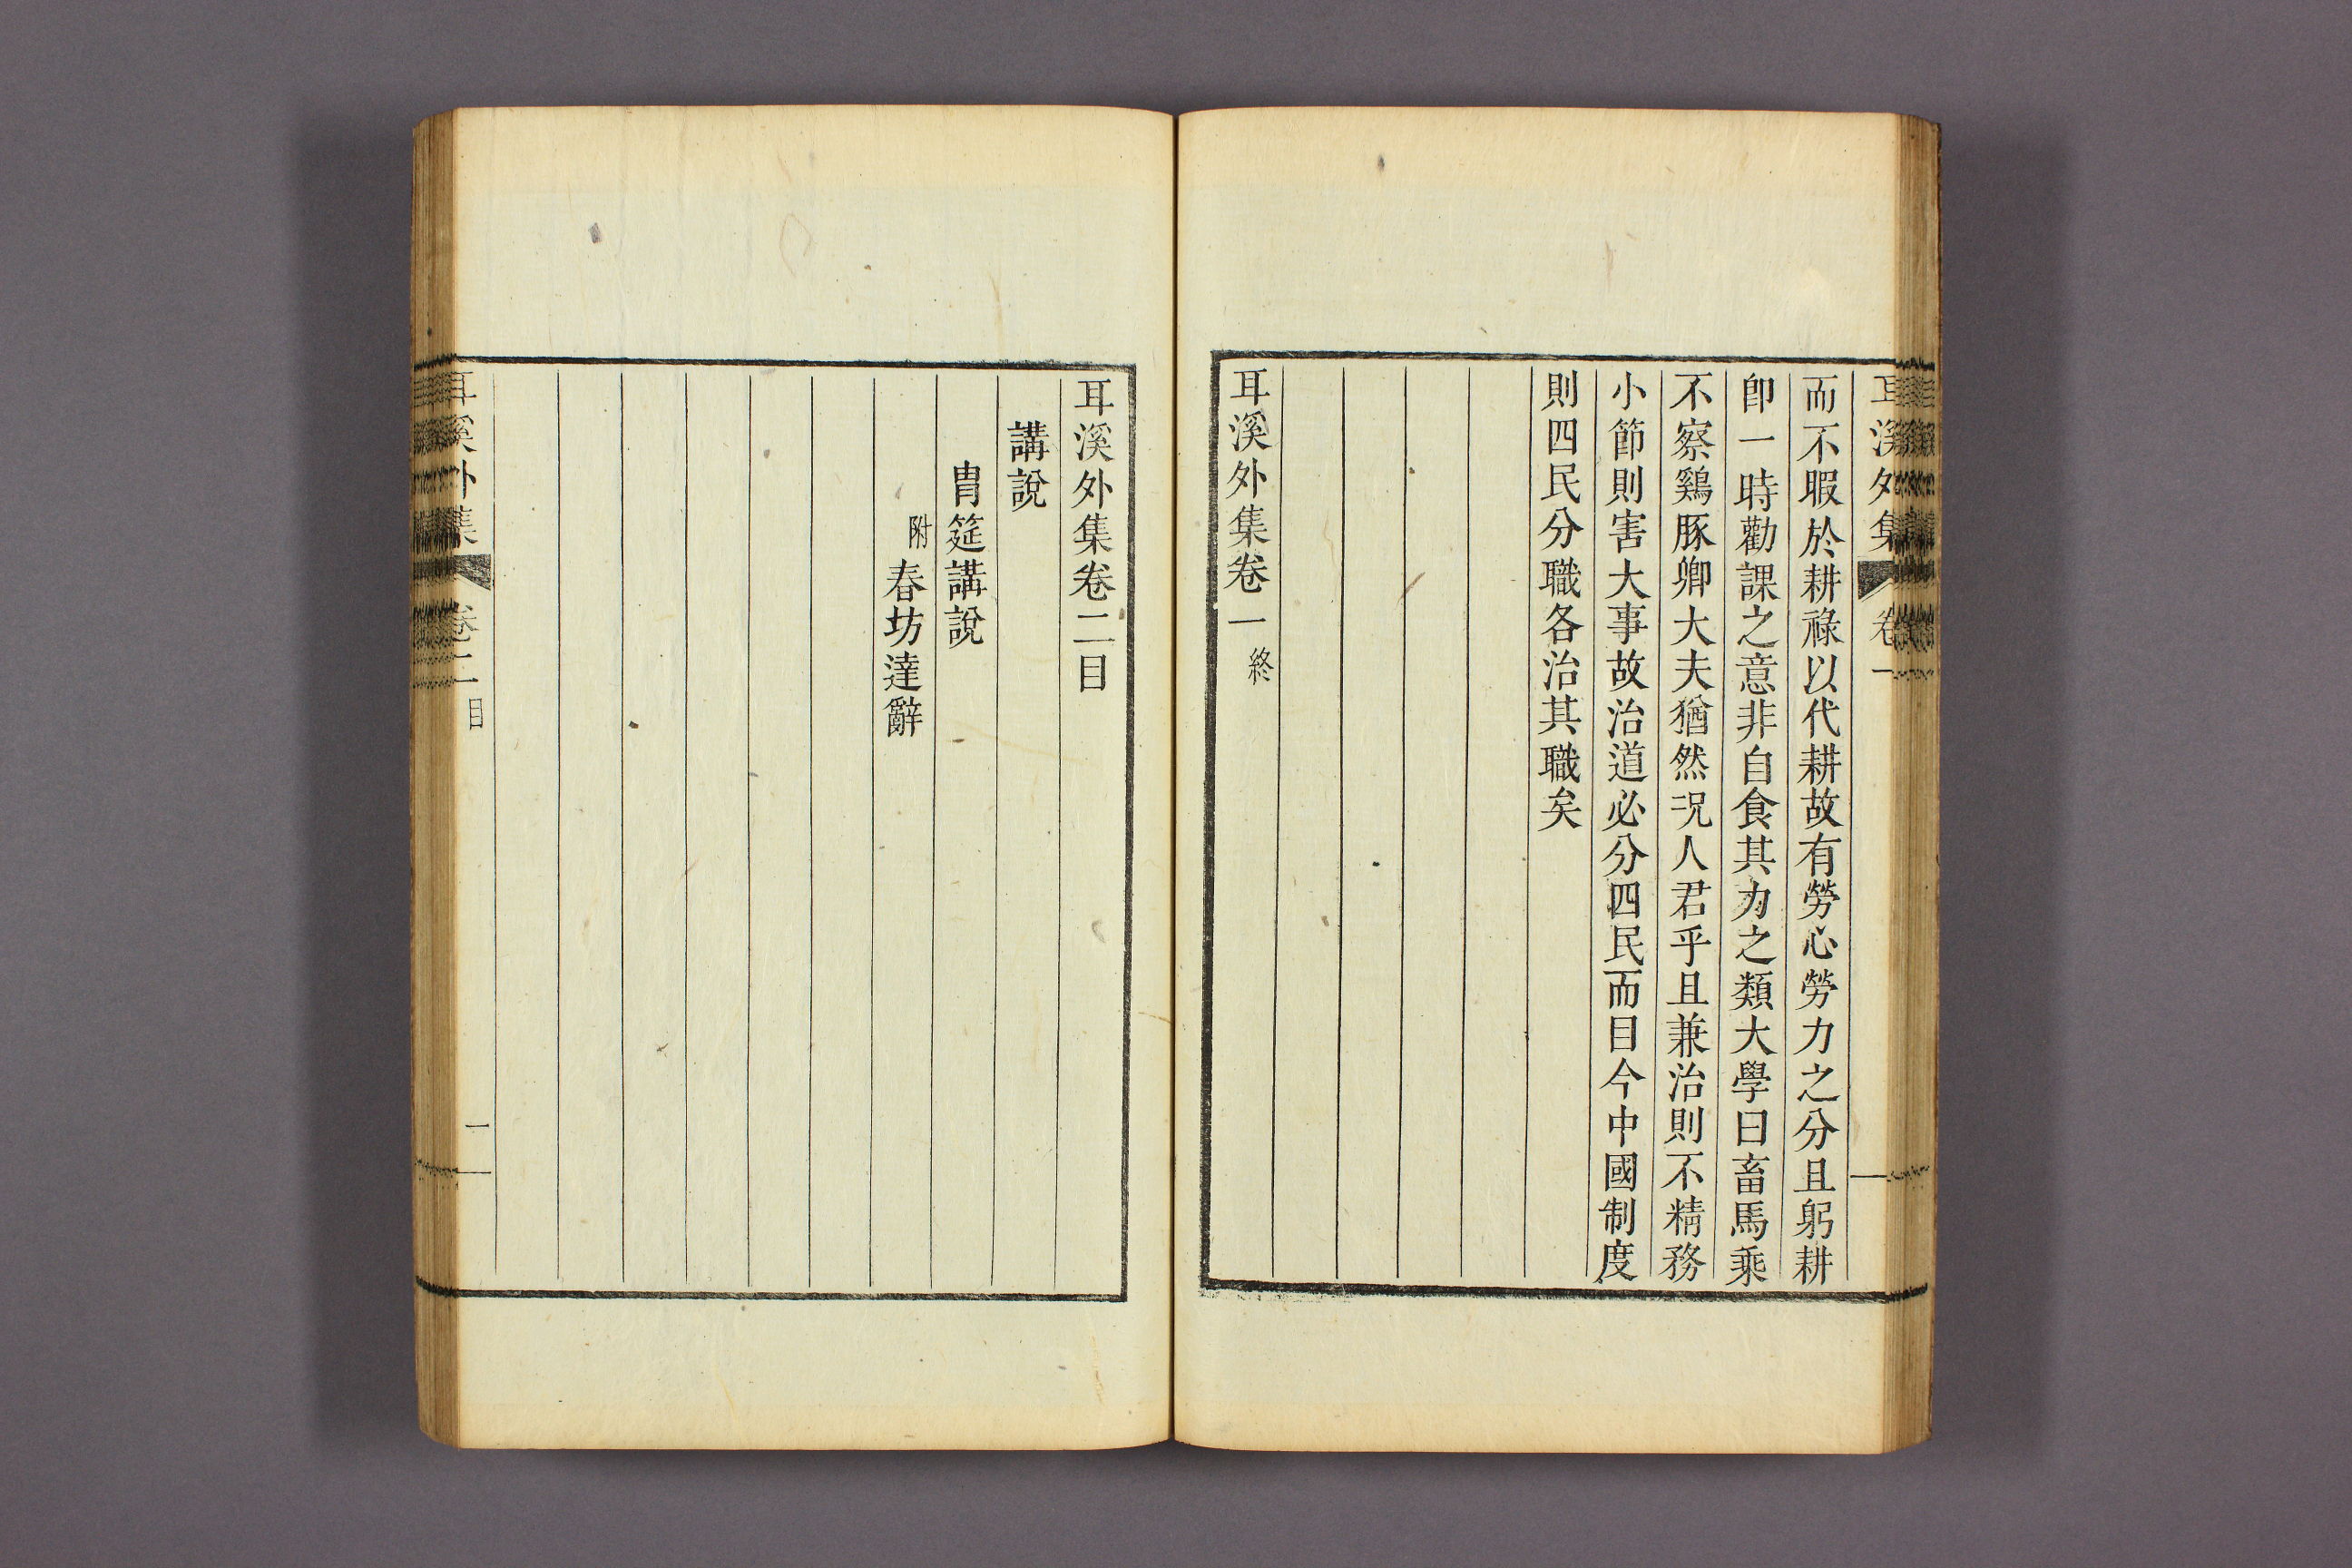 耳溪外集 卷一
而不暇於耕祿以代耕故有勞心勞力之分且躬耕
卽一時勸課之意非自食其力之類大學曰畜馬乘
不察鷄豚卿大夫猶然况人君乎且兼治則不精務
小節則害大事故治道必分四民而目今中國制度
則四民分職各治其職矣
耳溪外集卷一終
耳溪外集卷二目
講說
冑筵講說
附春坊達辭
耳溪外集 卷二目 一